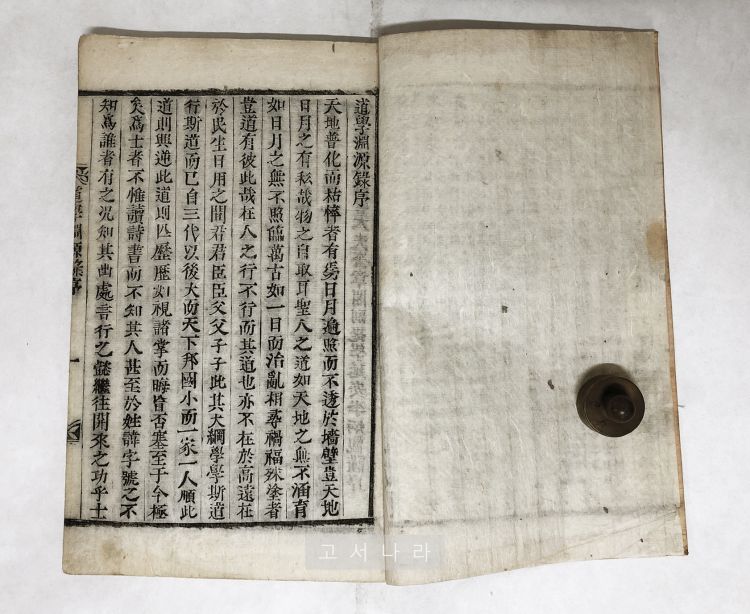 道學淵源錄序
天地普化而枯悴者有焉日月遍照而不透於墻壁豈天地
日月之有私哉物之自取耳聖人之道如天地之無不涵育
如日月之無不照臨萬古如一日而治亂相尋禍福殊塗者
豈道有彼此哉在人之行不行而其道也亦不在於高遠在
於民生日用之間君君臣臣父父子子此其大綱學學斯道
行斯道而已自三代以後大而天下邦國小而一家一人順此
道則興逆此道則亡歷歷如視諸掌而晦盲否塞至于今極
矣爲士者不惟讀詩書而不知其人甚至於姓諱字號之不
知爲誰者有之況知其出處言行之懿繼往開來之功乎士
道學淵源錄序
一
고서나라